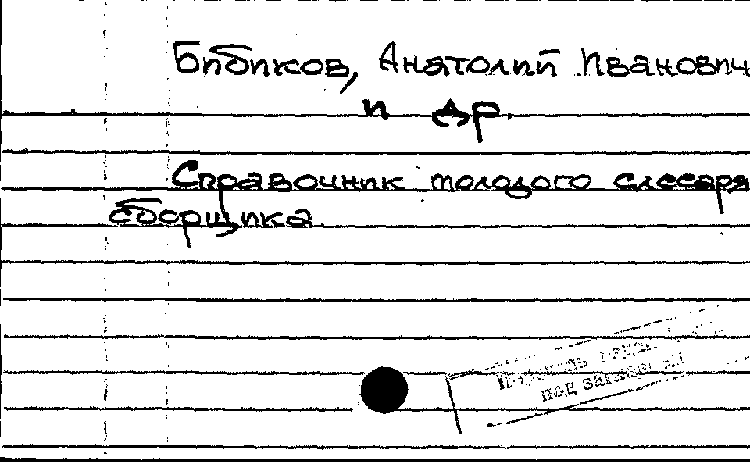 Бибиков, Анатолий Иванович
и др.
Справочник молодого слесаря
сборщика.
под заглавием